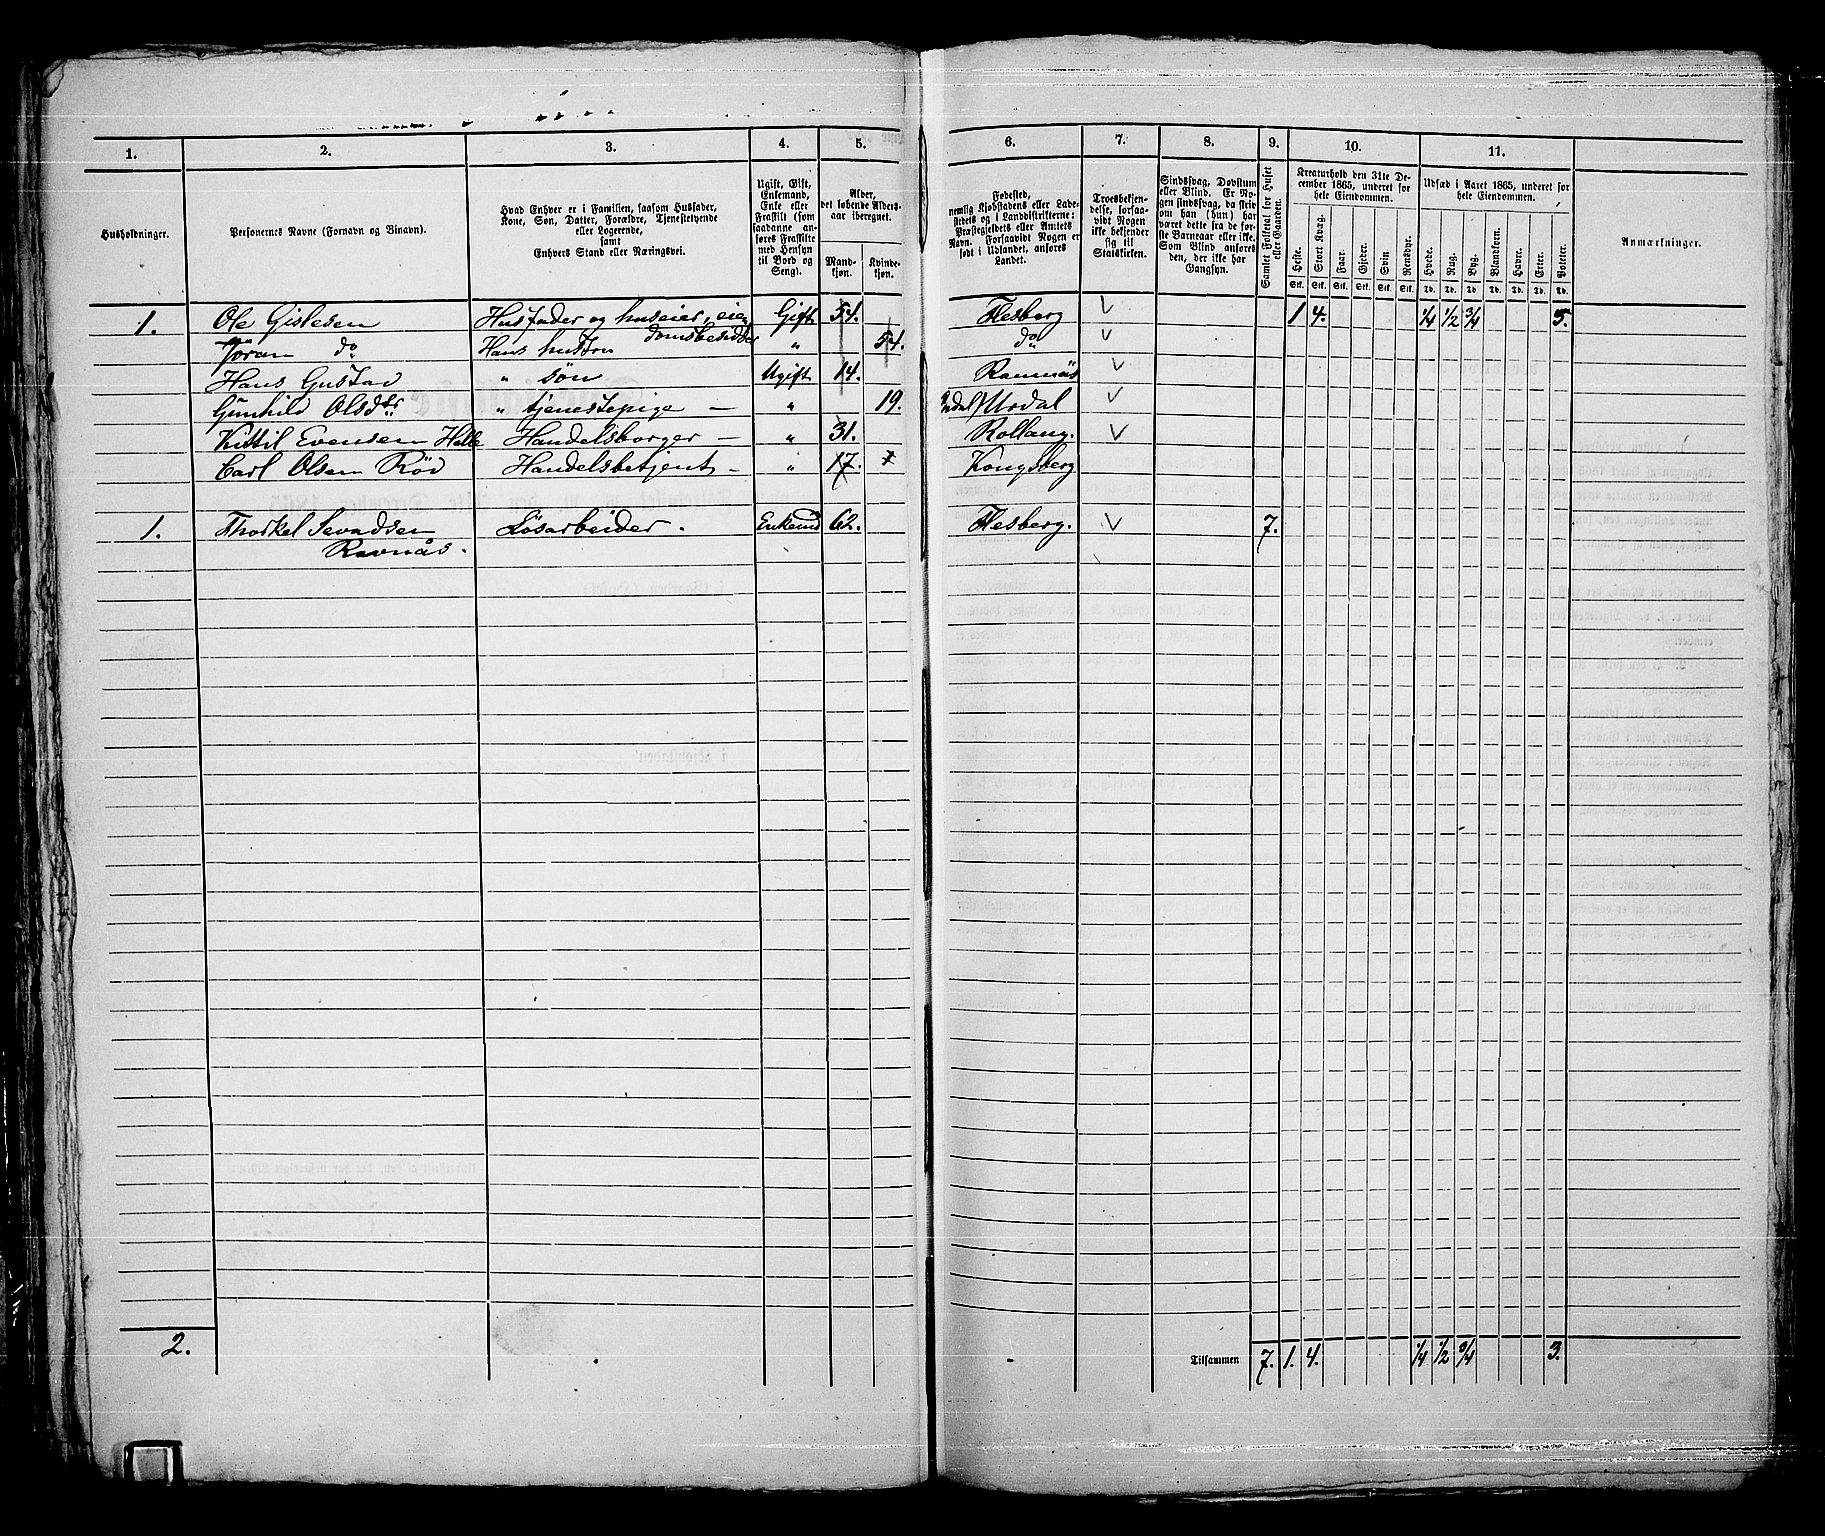 1. 2. 3. 4. 5. 6. 7. 8. 9. 10. 11.
Husholdninger.
Personernes Navne (Fornavn og Binavn).
Hvad Enhver er i Familien, saasom Husfader,
Kone, Søn, Datter, Forældre, Tjenestetyende
eller Logerende,
samt
Enhvers Stand eller Næringsvei.
Ugift, Gift,
Enkemand,
Enke eller
Fraskilt (som
saadanne an-
føres Fraskilte
med Hensyn
til Bord og
Seng).
Alder,
det løbende Alders-
aar iberegnet.
Mand-
kjøn.
Kvinde-
kjøn.
Fødested,
nemlig Kjøbstadens eller Lade-
stedets og i Landdistrikterne:
Præstegjeldets eller Amtets
Navn. Forsaavidt Nogen er
født i Udlandet, anføres
Landet.
Troesbekjen-
delse, forsaa-
vidt Nogen
ikke bekjender
sig til
Statskirken.
Sindssvag, Døvstum
eller Blind. Er No-
gen sindssvag, da skriv
om han (hun) har
været dette fra de før-
ste Barneaar eller ikke.
Som Blind anføres
den, der ikke har
Gangsyn.
Samlet Folketal for Huset
eller Gaarden.
Kreaturhold den 31te De-
cember 1865, underet for
hele Eiendommen.
Heste. Stort Kvæg. Faar. Gjeder. Svin Rensdyr.
Stk. Stk. Stk. Stk. Stk. Stk.
Udsæd i Aaret 1865, underet for
hele Eiendommen.
Hvede. Rug. Byg. Blandkorn. Havre. Erter. Poteter.
Td. Td. Td. Td. Td. Td. Td.
Anmærkninger.
1. Ole Gislesen Husfader og huseier, eien Gift 54. Flesberg V 1 4. 1/4 1/2 3/4
domsbesidder
Jøran do Hans hustru " 54. do V
Hans Gustav " søn Ugift 14. V
Gunhild Olsdtr " tjenestepige — " 19. V
Kittil Evensen Helle Handelsborger — " 31. Rollaug. V
Carl Olsen Röd Handelsbetjent — " 17. Kongsberg
1. Thorkel Sevadsen Løsarbeider. Enkemd 62. Flesberg. V 7.
Ravnås.
2. Tilsammen 7. 1. 4. 1/4 1/2 3/4 3.